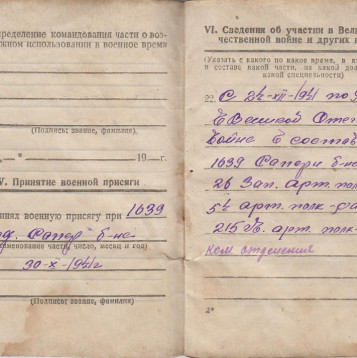 пределение командования части о воз-
жном использовании в военное время
(Подпись: звание, фамилия)
19 г.
V. Принятие военной присяги
инял военную присягу при 1639
Сапер б-не
наименование части, число, месяц и год)
30-X-1941г
(Подпись: звание, фамилия)
VI. Сведения об участии в Вели
чественной войне и других
(Указать с какого по какое время, в к
в составе какой части, на какой дол
какой специальности)
22. С 24-XII-1941 по
Великой Отеч
Войне в состав
1639 Сапери б-не
26 Зап. арт. пол
54 арт. полк
215 Гв. арт. полк
ком. отделения
2*